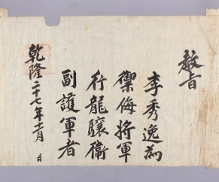 教旨
李秀逸為
禦侮將軍
行龍驤衛
副護軍者
乾隆二十七年十二月 日